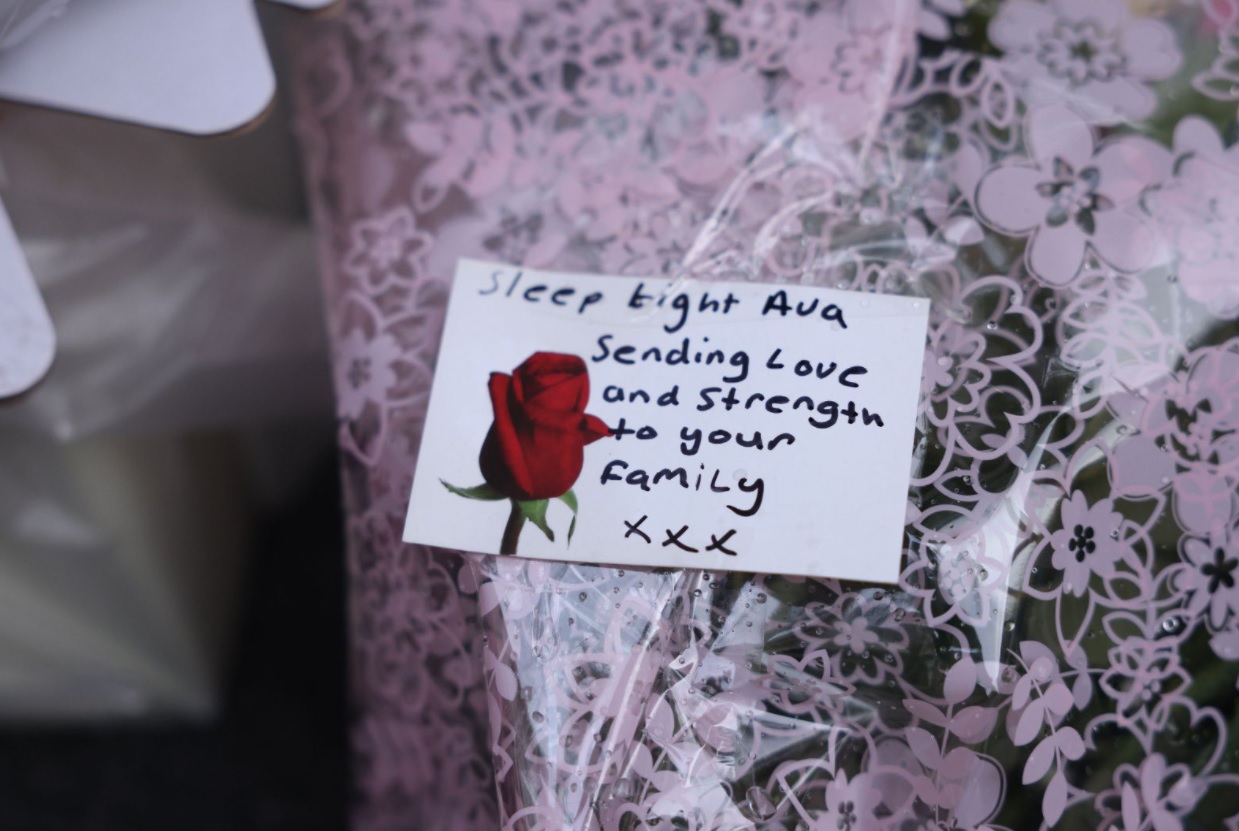 Sleep tight Ava
Sending Love
and strength
to your
family
xxx